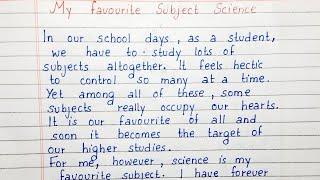 My favourite Subject Science
In our school days, as a student,
we have to study lots of
subjects altogether. It feels hectic
to control so many at a time.
Yet among all of these, some
subjects really occupy our hearts.
It is our favourite of all and
soon it becomes the target of
our higher studies.
For me, however, science is my
favourite subject. I have forever